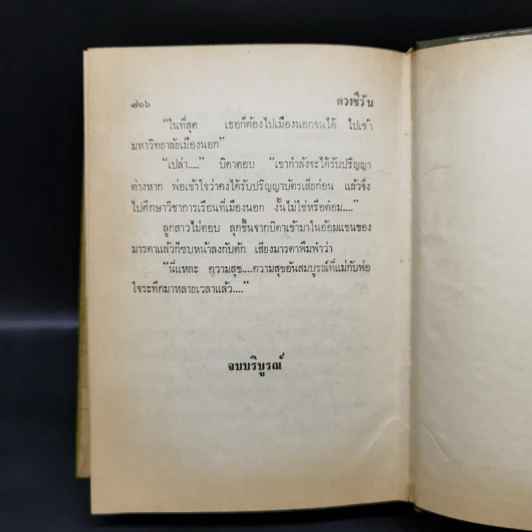 ๗๐๖ ดวงชีวัน
"ในที่สุด เธอก็ต้องไปเมืองนอกจนได้ ไปเข้า
มหาวิทยาลัยเมืองนอก"
"เปล่า...." บิดาตอบ "เขากำลังจะได้รับปริญญา
ต่างหาก พ่อเข้าใจว่าคงได้รับปริญญาบัตรเสียก่อน แล้วจึง
ไปศึกษาวิชาการเรือนที่เมืองนอก งั้นไม่ใช่หรือต๋อม...."
ลูกสาวไม่ตอบ ลุกขึ้นจากบิดาเข้ามาในอ้อมแขนของ
มารดาแล้วก็ซบหน้าลงกับตัก เสียงมารดาพึมพำว่า
"นี่แหละ ความสุข....ความสุขอันสมบูรณ์ที่แม่กับพ่อ
ใจระทึกมาหลายเวลาแล้ว...."
จบบริบูรณ์